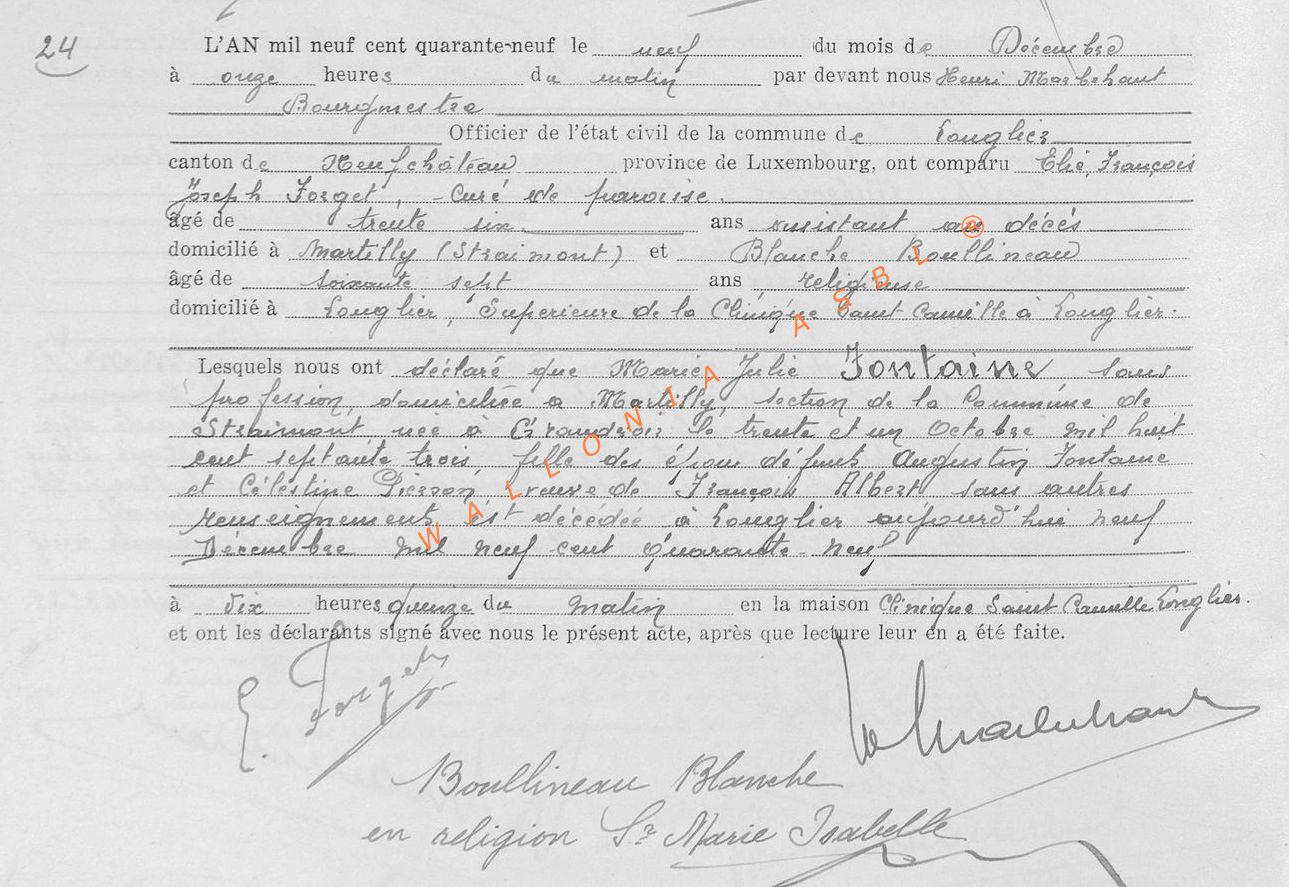 24
L'AN mil neuf cent quarante-neuf le neuf du mois de Décembre
à onze heures du matin par devant nous Henri Marbehant
Bourgmestre
Officier de l'état civil de la commune de Longlier
canton de Neufchâteau province de Luxembourg, ont comparu Elie, François
Joseph Forget, - curé de paroisse.
âgé de trente six ans assistant au décés
domicilié à Martilly (Straimont) et Blanche Boullineau
âgé de soixante sept ans religieuse
domicilié à Longlier, Superieure de la Clinique Saint Camille à Longlier.
Lesquels nous ont déclaré que Marie Julie Fontaine sans
profession, domiciliée à Martilly, section de la Commune de
Straimont née à le trente et un Octobre mil huit
cent septante trois, fille des époux défunts Augustin Fontaine
et Célestine Pierson, veuve de François Albert sans autres
renseignements est décédée à Longlier aujourd'hui neuf
Décembre mil neuf cent quarante-neuf
à dix heures quinze du matin en la maison Clinique Saint Camille Longlier.
et ont les déclarants signé avec nous le présent acte, après que lecture leur en a été faite.
E. Forget
Boullineau Blanche
en religion Sr Marie Isabelle
WALLONIA ASBL ®